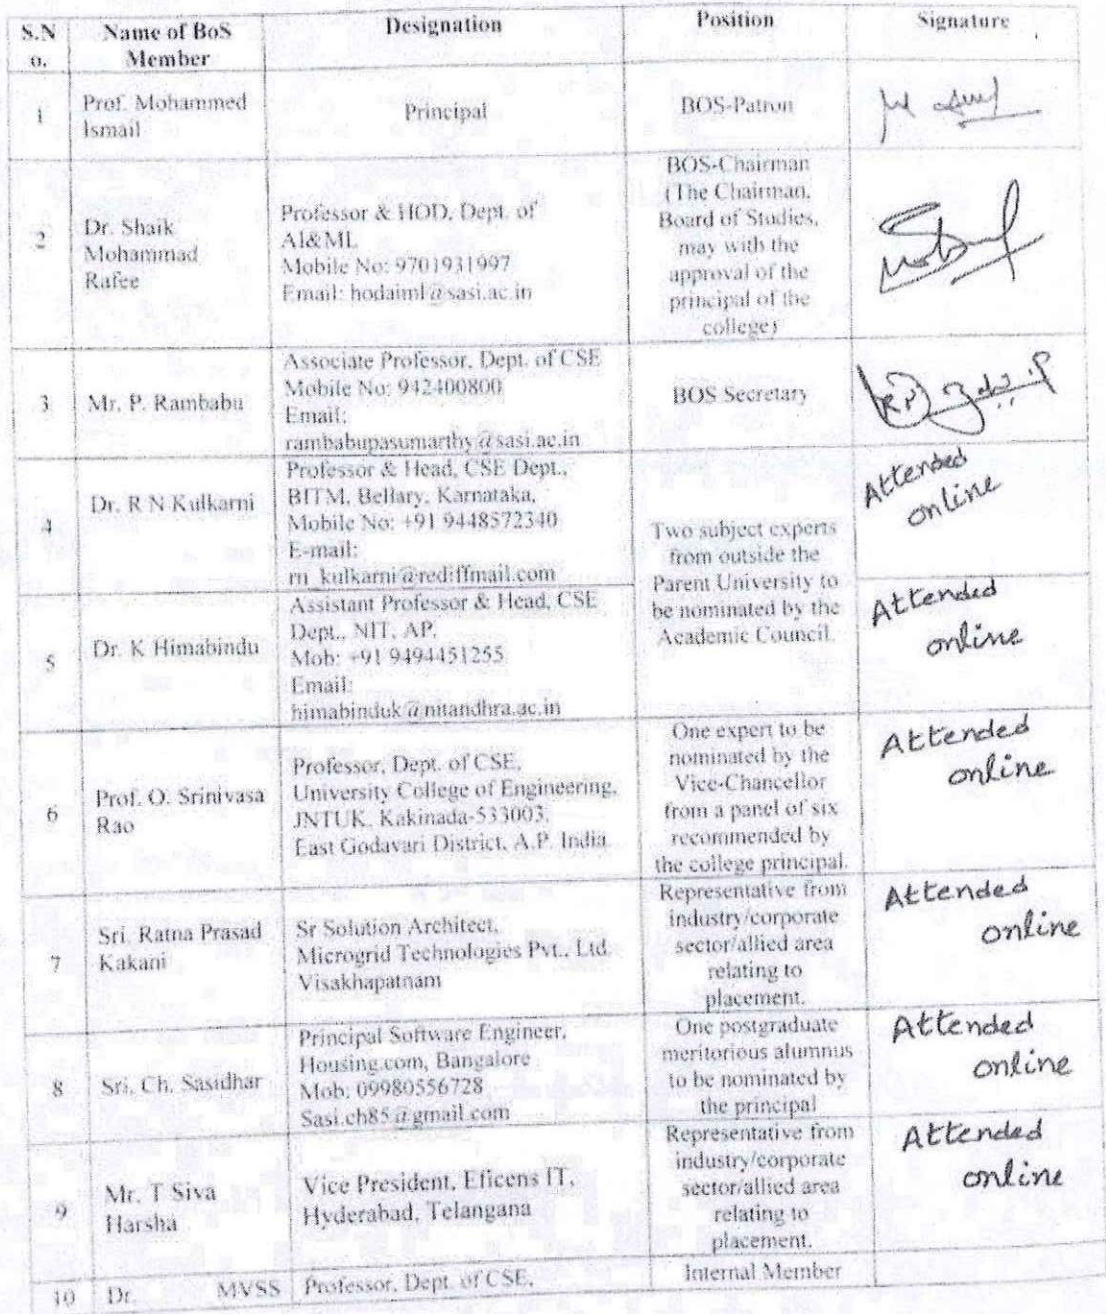 S.N
o.
Name of BoS
Member
Designation
Position
Signature
1
Prof. Mohammed
Ismail
Principal
BOS-Patron
2
Dr. Shaik
Mohammad
Rafee
Professor & HOD, Dept. of
AI&ML
Mobile No: 9701931997
Email: hodaiml@sasi.ac.in
BOS-Chairman
(The Chairman,
Board of Studies,
may with the
approval of the
principal of the
college)
3
Mr. P. Rambabu
Associate Professor, Dept. of CSE
Mobile No: 942400800
Email:
rambabupasumarthy@sasi.ac.in
BOS Secretary
4
Dr. R N Kulkarni
Professor & Head, CSE Dept.,
BITM, Bellary, Karnataka,
Mobile No: +91 9448572340
E-mail:
rn_kulkarni@rediffmail.com
Two subject experts
from outside the
Parent University to
be nominated by the
Academic Council.
Attended
online
5
Dr. K Himabindu
Assistant Professor & Head, CSE
Dept., NIT, AP,
Mob: +91 9494451255
Email:
himabinduk@nitandhra.ac.in
Attended
online
6
Prof. O. Srinivasa
Rao
Professor, Dept. of CSE,
University College of Engineering,
JNTUK, Kakinada-533003,
East Godavari District, A.P. India
One expert to be
nominated by the
Vice-Chancellor
from a panel of six
recommended by
the college principal.
Attended
online
7
Sri. Ratna Prasad
Kakani
Sr Solution Architect,
Microgrid Technologies Pvt., Ltd.
Visakhapatnam
Representative from
industry/corporate
sector/allied area
relating to
placement.
Attended
online
8
Sri. Ch. Sasidhar
Principal Software Engineer,
Housing.com, Bangalore
Mob: 09980556728
Sasi.ch85@gmail.com
One postgraduate
meritorious alumnus
to be nominated by
the principal
Attended
online
9
Mr. T Siva
Harsha
Vice President, Eficens IT,
Hyderabad, Telangana
Representative from
industry/corporate
sector/allied area
relating to
placement.
Attended
online
10
Dr. MVSS
Professor, Dept. of CSE,
Internal Member